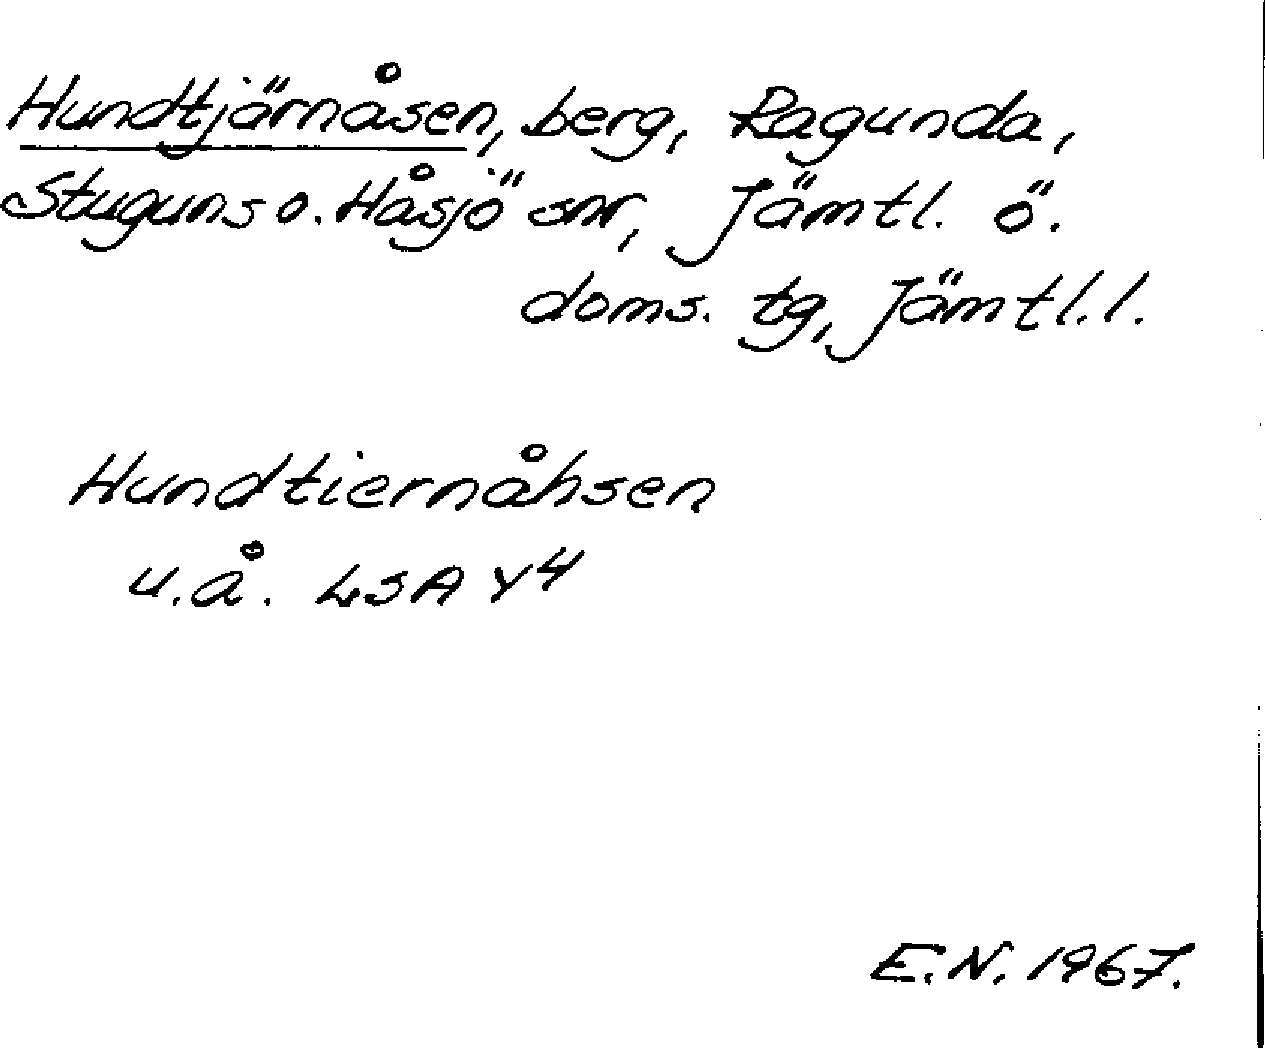 Hundtjärnåsen, berg, Ragunda,
Stuguns o. Håsjö snr, Jämtl. ö.
doms. tg, Jämtl. l.
Hundtiernåhsen
u.å. LSA Y4
E.N. 1967.